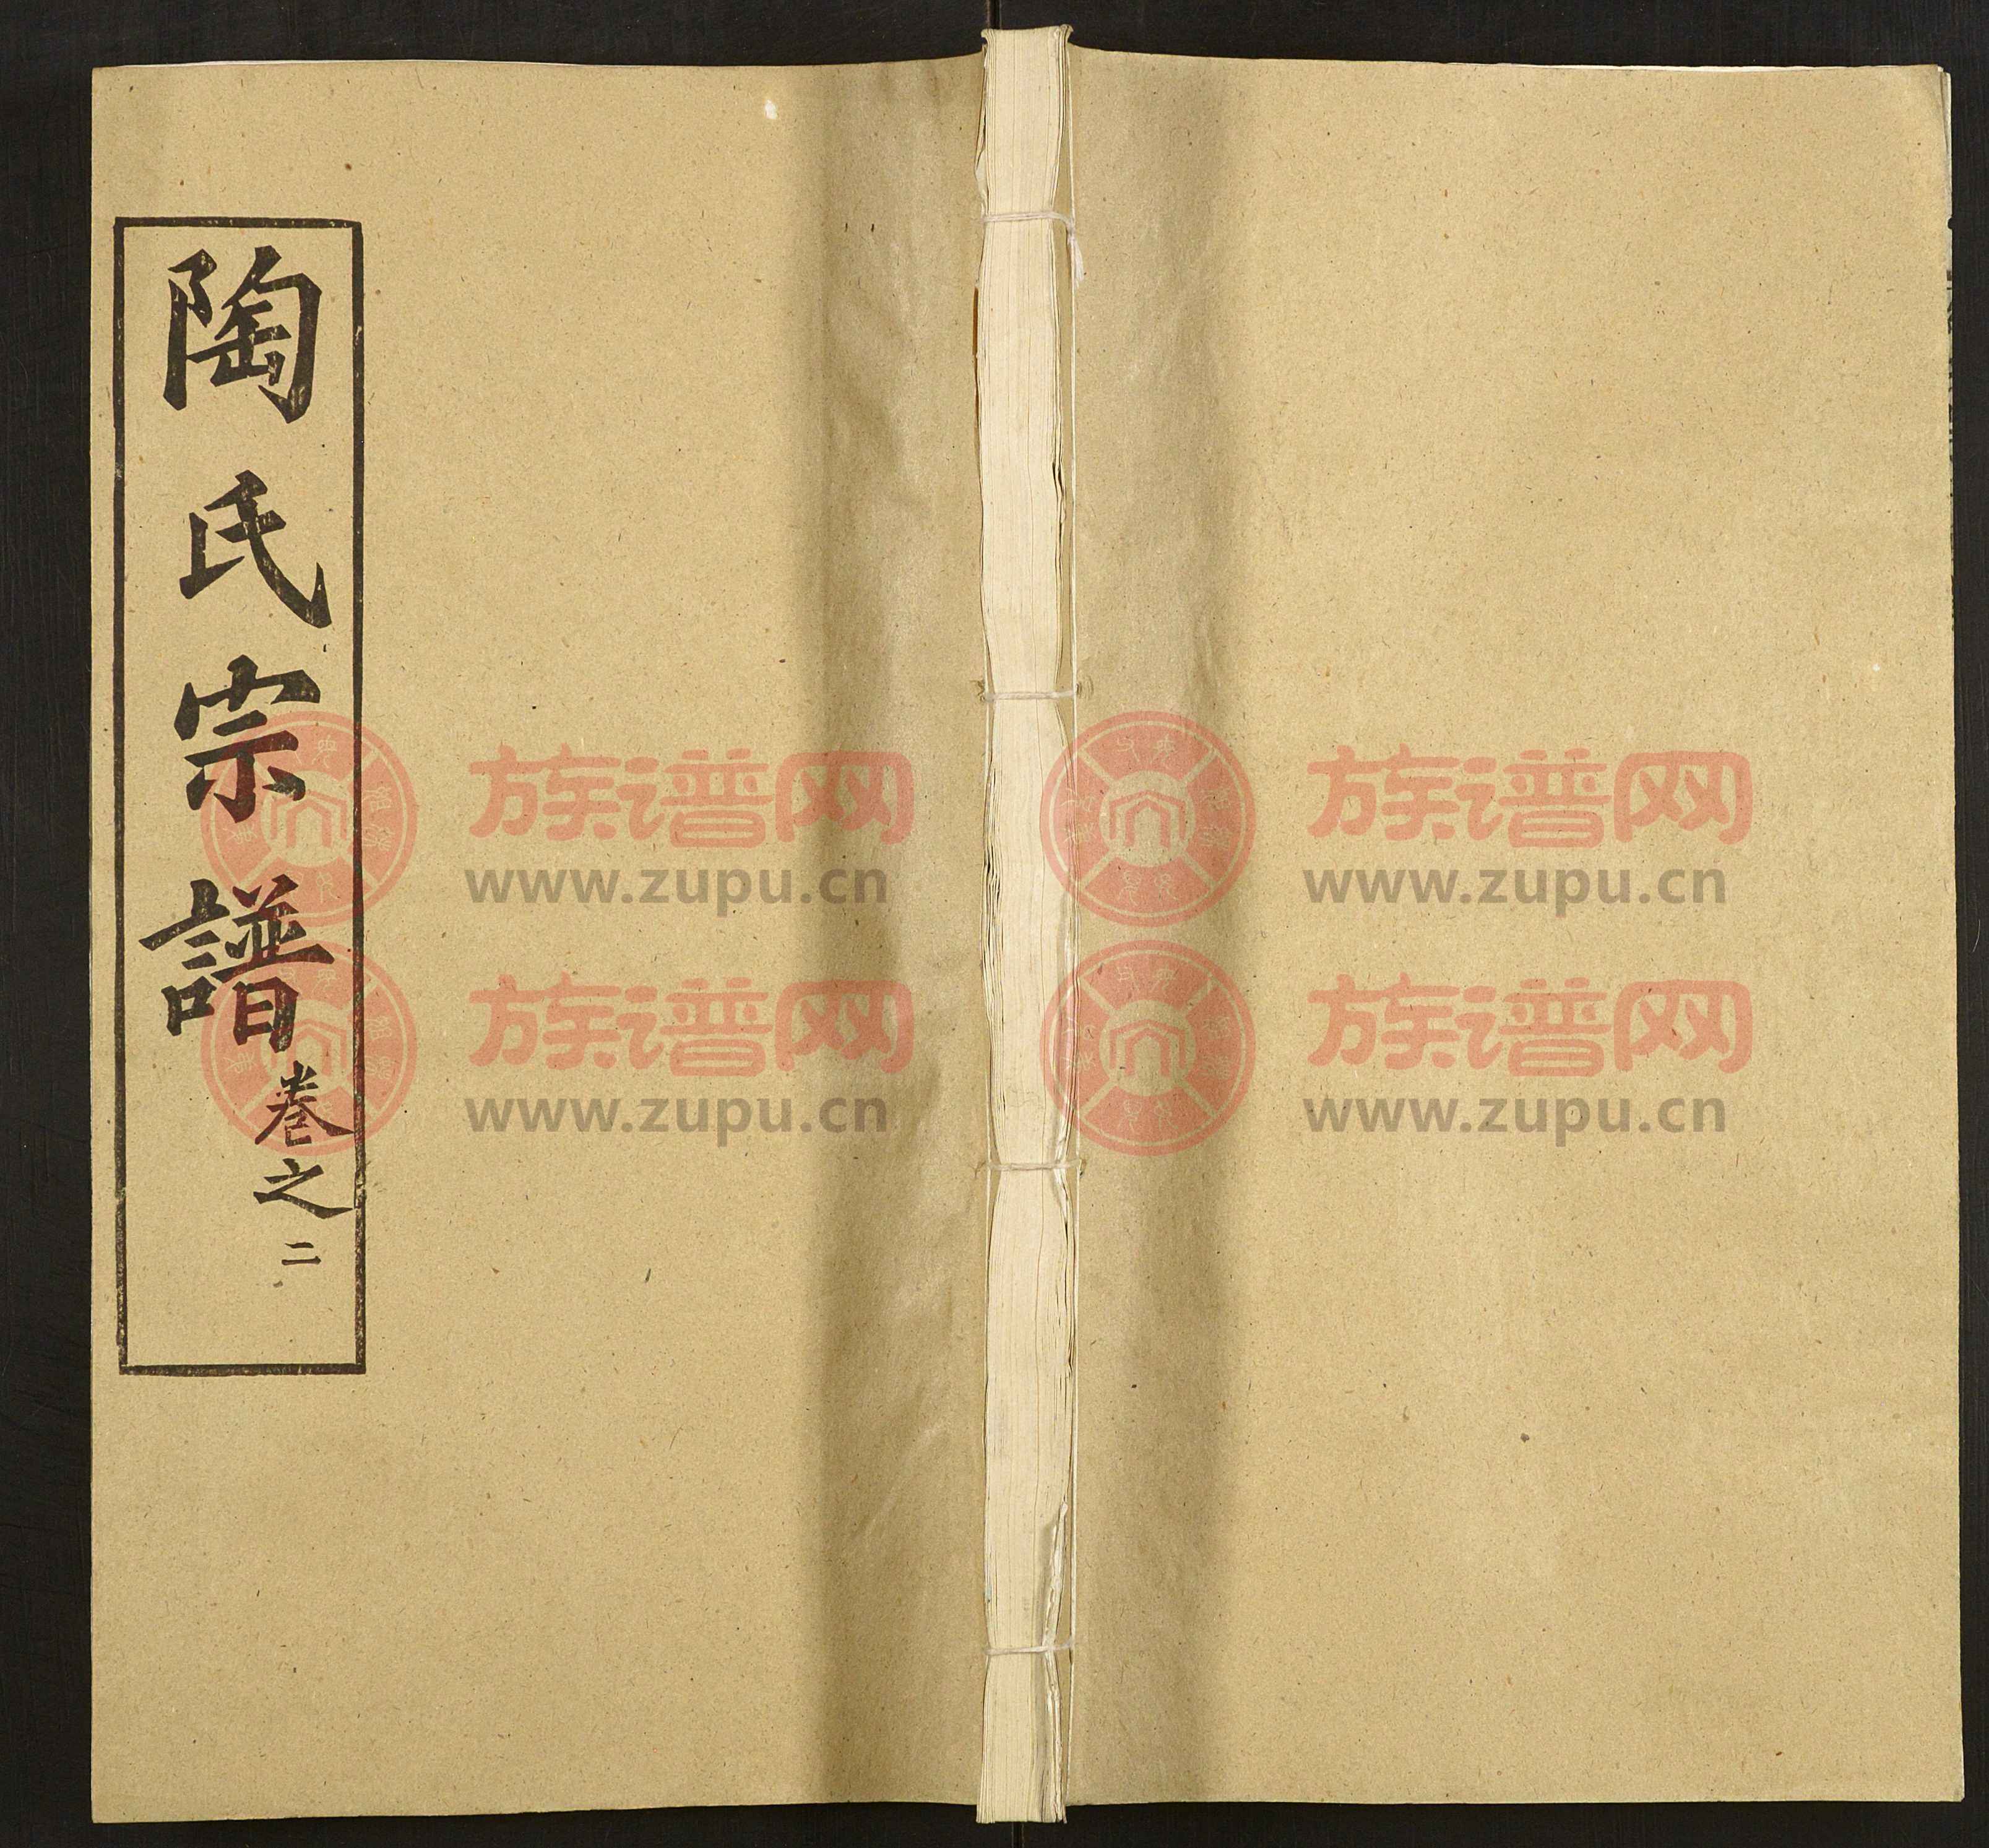 陶氏宗譜
卷之二
族谱网
www.zupu.cn
族谱网
www.zupu.cn
族谱网
www.zupu.cn
族谱网
www.zupu.cn